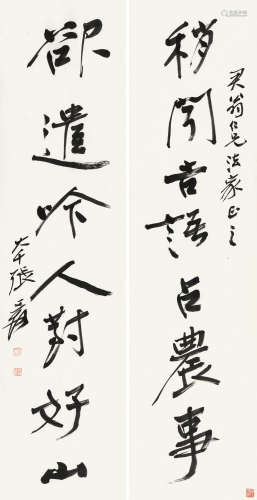 稍聞吉語占農事
翁仁兄法家正之
卻遣吟人對好山
大千張爰